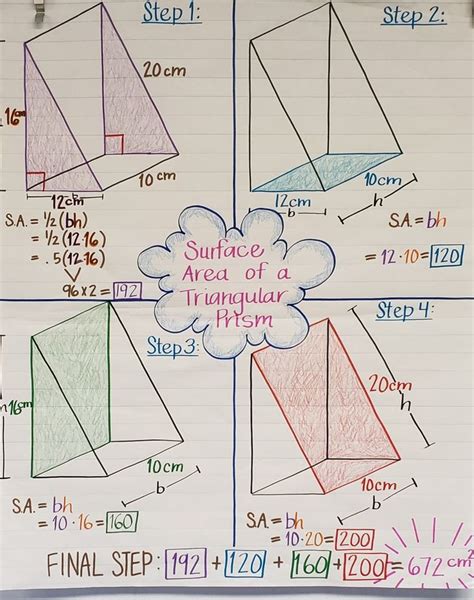 Step 1:
20cm
16cm
10cm
12cm
b
S.A. = ½ (bh)
= ½ (12·16)
= .5 (12·16)
96 x 2 = 192
Step 2:
10cm
12cm
b
h
S.A. = bh
= 12·10 = 120
Surface
Area of a
Triangular
Prism
Step 3:
16cm
10cm
b
S.A. = bh
= 10·16 = 160
Step 4:
20cm
h
10cm
b
S.A. = bh
= 10·20 = 200
FINAL STEP: 192 + 120 + 160 + 200 = 672 cm²